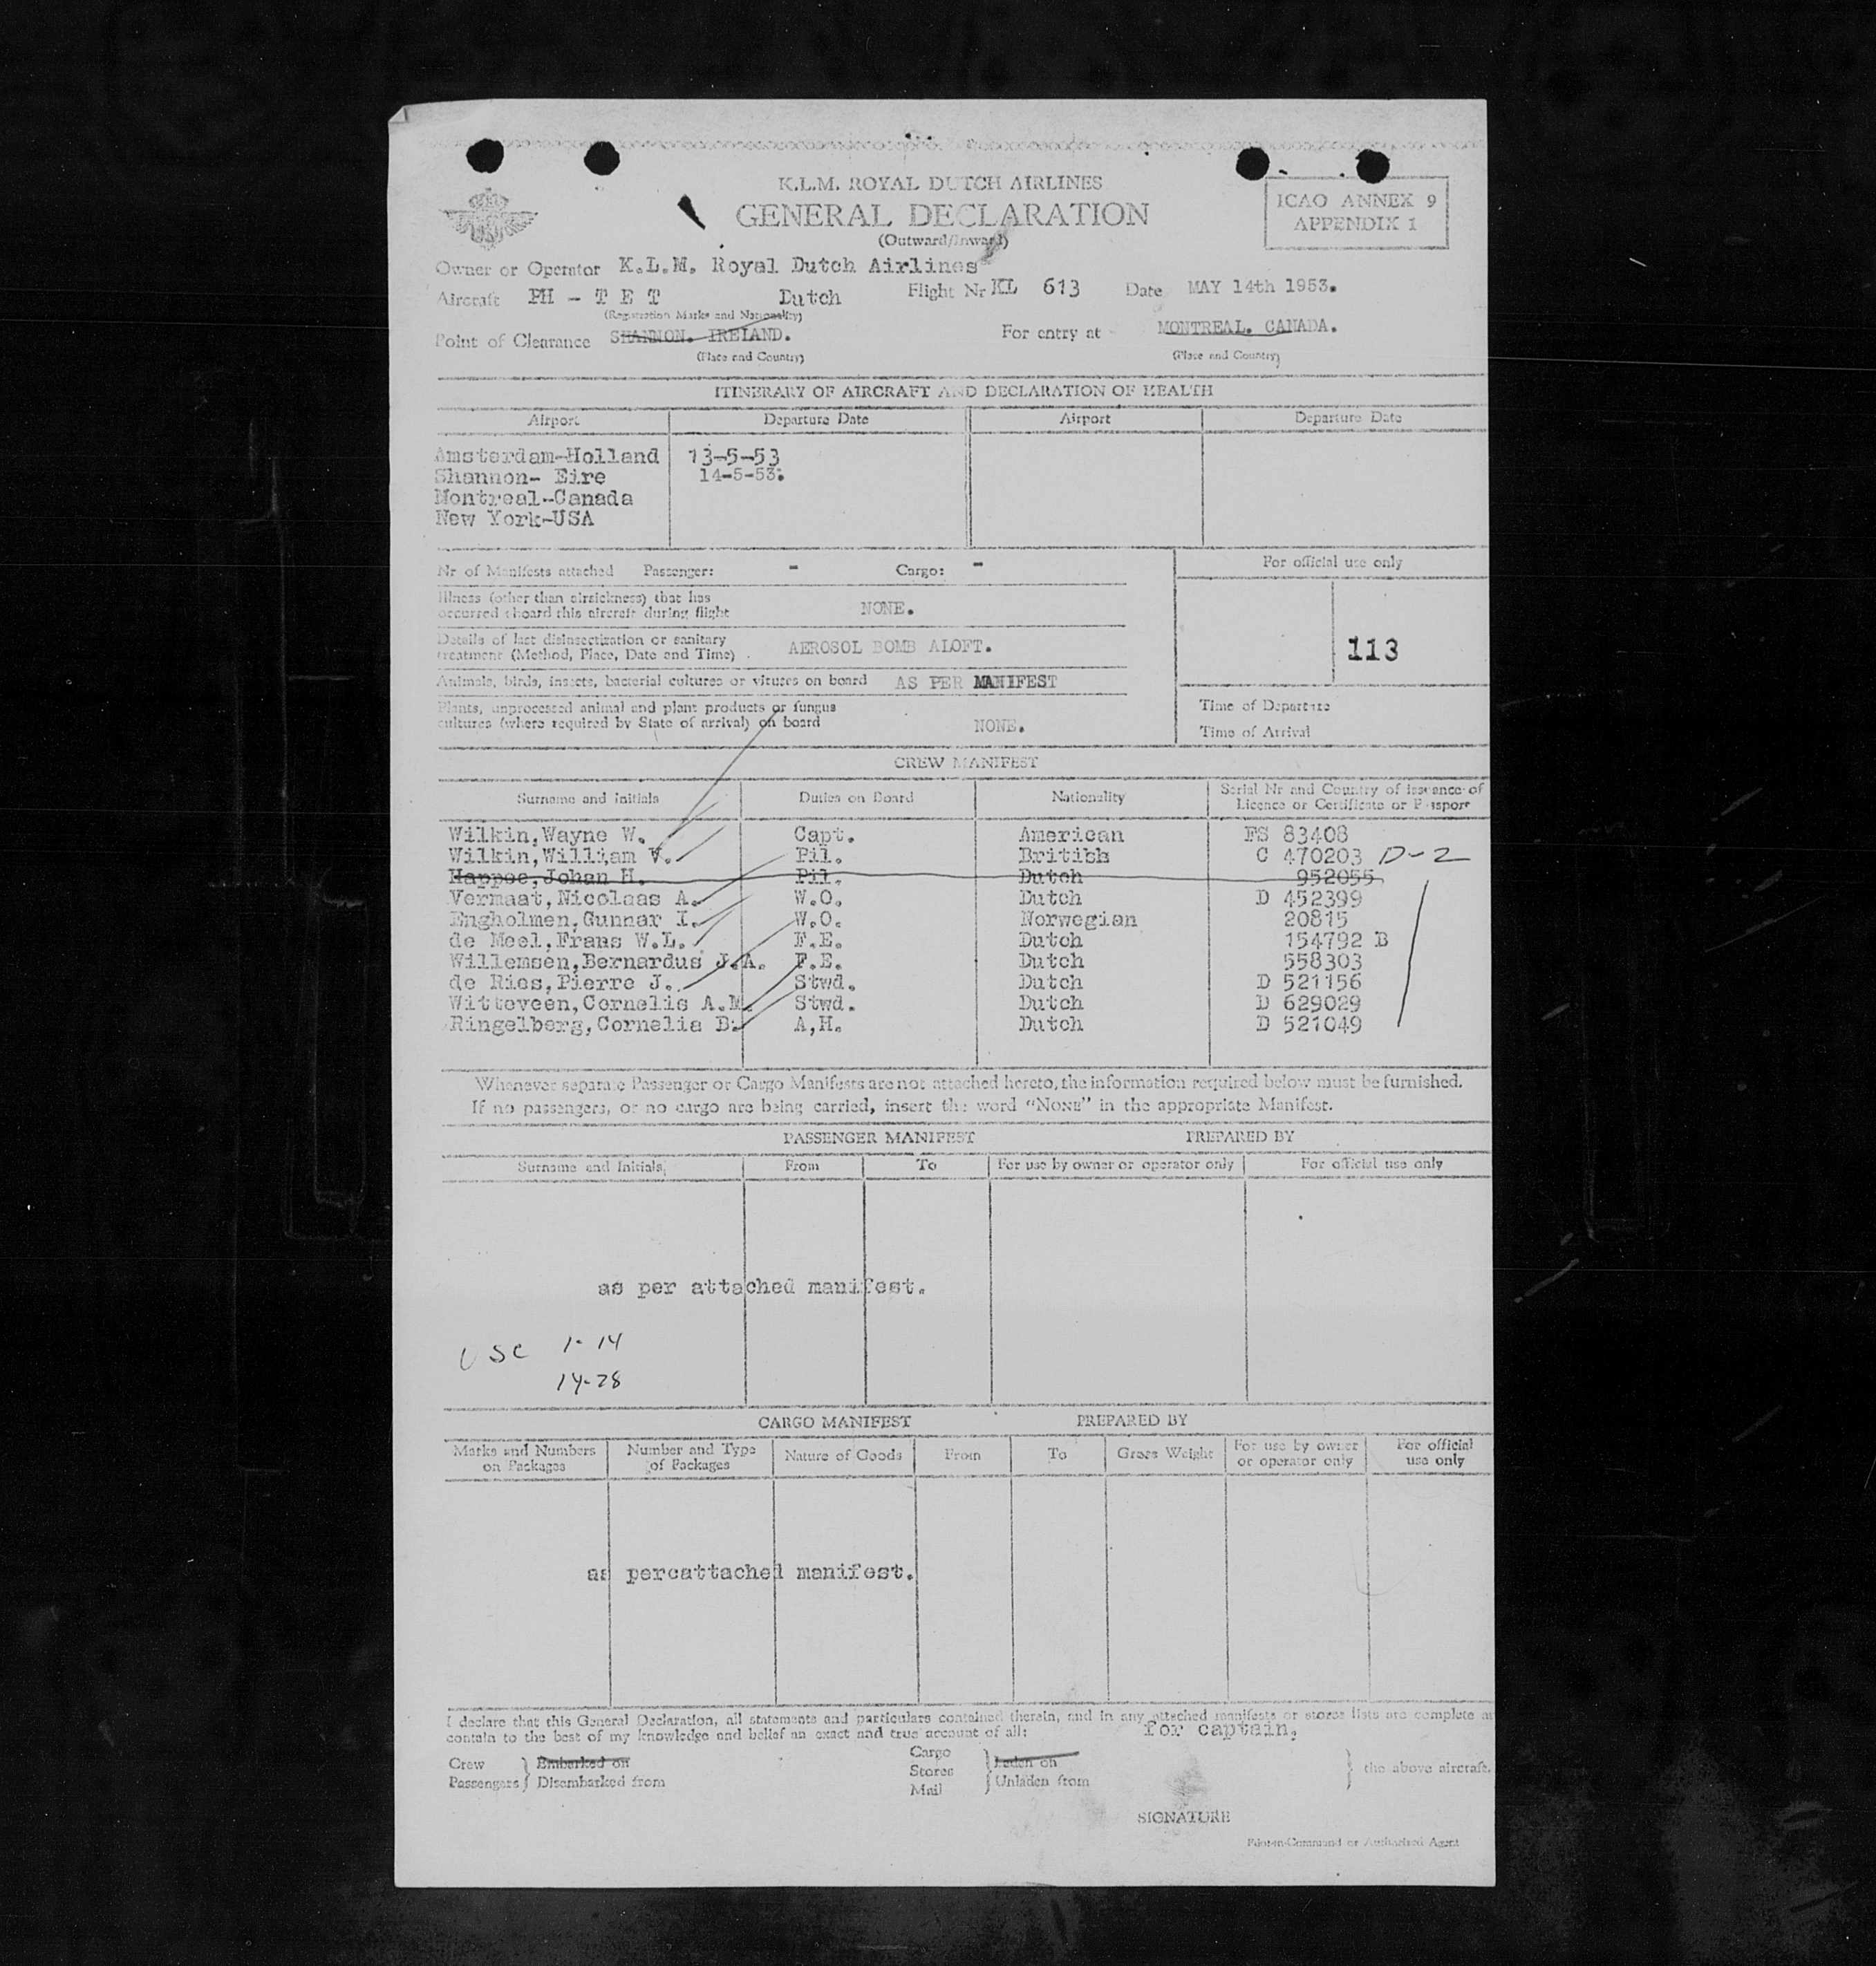 K.L.M. ROYAL DUTCH AIRLINES
GENERAL DECLARATION
(Outward/Inward)
ICAO ANNEX 9
APPENDIX 1
Owner or Operator K.L.M. Royal Dutch Airlines
Aircraft PH - T E T Dutch Flight Nr KL 613 Date MAY 14th 1953.
(Registration Marks and Nationality)
Point of Clearance SHANNON. IRELAND. For entry at MONTREAL. CANADA.
(Place and Country) (Place and Country)
ITINERARY OF AIRCRAFT AND DECLARATION OF HEALTH
Airport Departure Date Airport Departure Date
Amsterdam-Holland 13-5-53
Shannon- Eire 14-5-53.
Montreal-Canada
New York-USA
Nr of Manifests attached Passenger: - Cargo: - For official use only
Illness (other than airsickness) that has
occurred aboard this aircraft during flight NONE.
Details of last disinsectization or sanitary
treatment (Method, Place, Date and Time) AEROSOL BOMB ALOFT.
113
Animals, birds, insects, bacterial cultures or viruses on board AS PER MANIFEST
Plants, unprocessed animal and plant products or fungus
cultures (where required by State of arrival) on board NONE.
Time of Departure
Time of Arrival
CREW MANIFEST
Surname and Initials Duties on Board Nationality Serial Nr and Country of Issuance of
Licence or Certificate or Passport
Wilkin,Wayne W. Capt. American FS 83408
Wilkin,William V. Pil. British C 470203 D-2
Happee,Johan H. Pil. Dutch 952055
Vermaat,Nicolaas A. W.O. Dutch D 452399
Engholmen,Gunnar I. W.O. Norwegian 20815
de Meel,Frans W.L. F.E. Dutch 154792 B
Willemsen,Bernardus J.A. F.E. Dutch 558303
de Ries,Pierre J. Stwd. Dutch D 521156
Witteveen,Cornelis A.M. Stwd. Dutch D 629029
Ringelberg,Cornelia B. A,H. Dutch D 521049
Whenever separate Passenger or Cargo Manifests are not attached hereto, the information required below must be furnished.
If no passengers, or no cargo are being carried, insert the word "NONE" in the appropriate Manifest.
PASSENGER MANIFEST PREPARED BY
Surname and Initials From To For use by owner or operator only For official use only
as per attached manifest.
USC 1-14
14-28
CARGO MANIFEST PREPARED BY
Marks and Numbers
on Packages Number and Type
of Packages Nature of Goods From To Gross Weight For use by owner
or operator only For official
use only
as percattached manifest.
I declare that this General Declaration, all statements and particulars contained therein, and in any attached manifests or stores lists are complete
contain to the best of my knowledge and belief an exact and true account of all: for captain,
Crew Embarked on Cargo Laden on
Stores the above aircraft.
Passengers Disembarked from Mail Unladen from
SIGNATURE
Pilot-in-Command or Authorized Agent